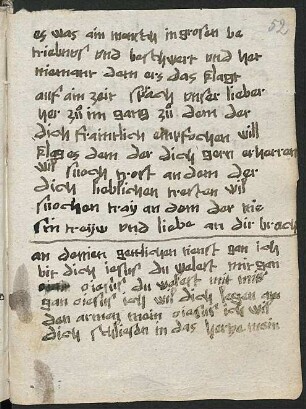 52
es was ain mensch in grosen be
triebnus und beschwert und het
niemant dem ers das klagt
auf ain zeit sprach unser lieber
her zů im gang zů dem der
dich fraintlich empfochen will
klag es dem der dich gern erherren
wil suoch trost an dem der
dich lieblichen tresten wil
suochen tray an dem der nie
sin treyw und liebe an dir brach
an deinen geittlichen dienst gan ich
bit dich iesus du welest mit gan
o iesus du welest mit mir
gan o iesus ich wil dich legen an
den armen mein o iesus ich wil
dich schliesen in das hertze mein